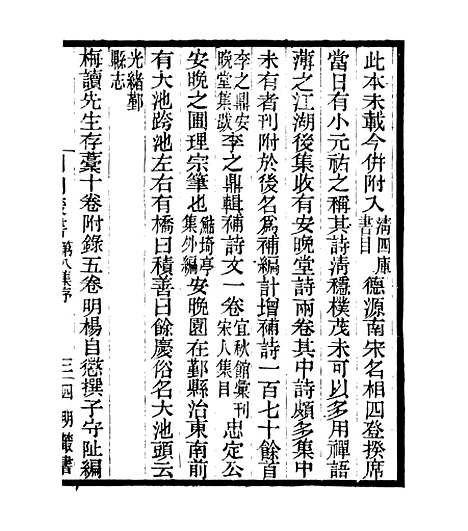 此本未載今併附入清四庫書目德源南宋名相四登揆席
當日有小元祐之稱其詩清穩樸茂未可以多用禪語
薄之江湖後集收有安晚堂詩兩卷其中詩頗多集中
未有者刊附於後名為補編計增補詩一百七十餘首
李之鼎安晚堂集䟦李之鼎輯補詩文一卷宜秋館彙刊宋人集目忠定公
安晚之圃理宗筆也鮚埼亭集外編安晚園在鄞縣治東南前
有大池跨池左右有橋曰積善曰餘慶俗名大池頭云
光緒鄞縣志
梅讀先生存藁十卷附錄五卷明楊自懲撰子守阯編
第八集序
三
四明叢書